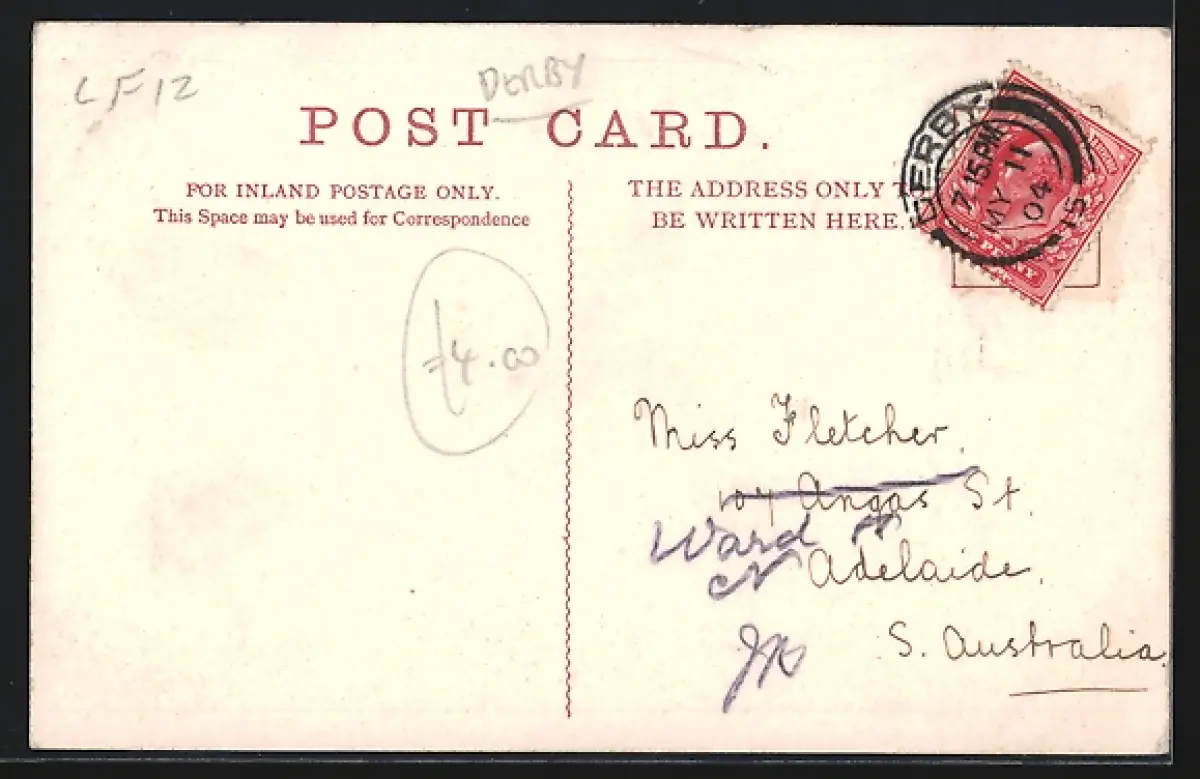 LF12
DERBY
POST CARD.
FOR INLAND POSTAGE ONLY.
This Space may be used for Correspondence
THE ADDRESS ONLY T
BE WRITTEN HERE.
DERBY
7.15 PM
MY 11
04
15
PENNY
£4.00
Miss Fletcher,
104 Angas St.
Ward St
N Adelaide,
S. Australia